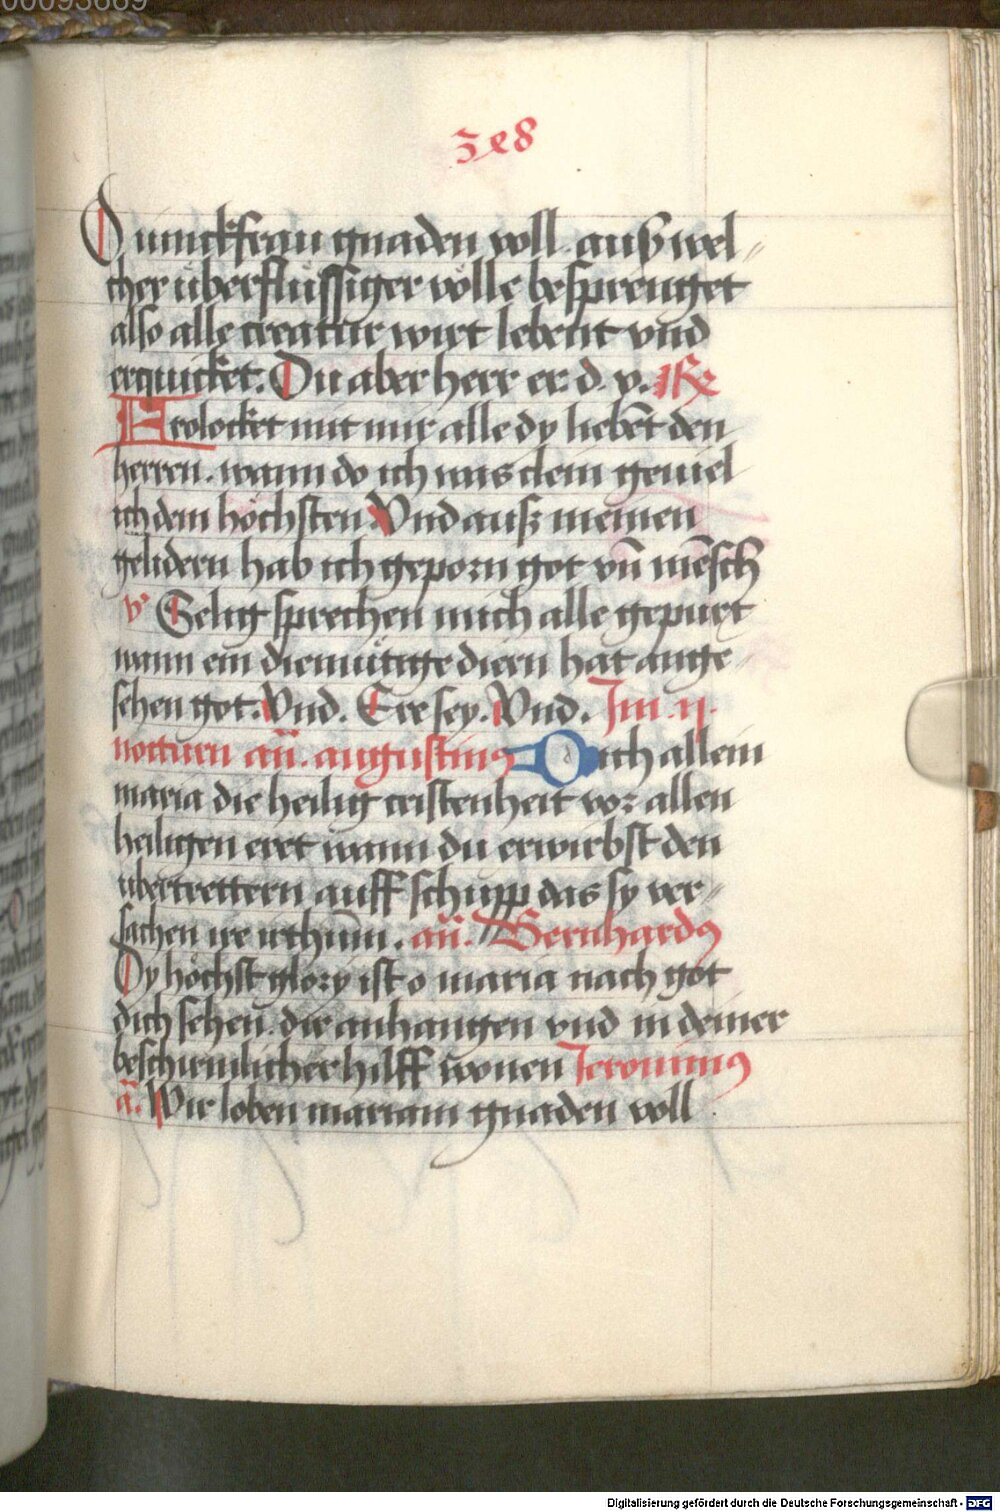 00093669
3e8
O iunckfrau gnaden voll. auß wel-
cher überflüssiger völle besprenget
also alle creatur wirt lebent vnd
erquicket. Du aber herr er. d. v. R
Frolocket mit mir alle dy liebēt den
herren. wann do ich was clein geuiel
ich dem höchsten Vnd auß meinen
gelidern hab ich geporn got vn̄ mēsch
v Selig sprechen mich alle gepurt
wann ein diemütige diern hat ange-
sehen got. Vnd. Ere sey. Vnd. Im. ij.
nocturn an̄. augustinus Dich allein
maria die heilig cristenheit vor allen
heiligen eret wann du erwirbst den
übertrettern auff schupp das sy ver-
sachen ire irthum̄. an̄. Bernhardus
Dy höchst glory ist o maria nach got
dich sehen. dir anhangen vnd in deiner
beschirmlicher hilff wonen Jeronimus
a. Wir loben mariam gnaden voll
Digitalisierung gefördert durch die Deutsche Forschungsgemeinschaft - DFG